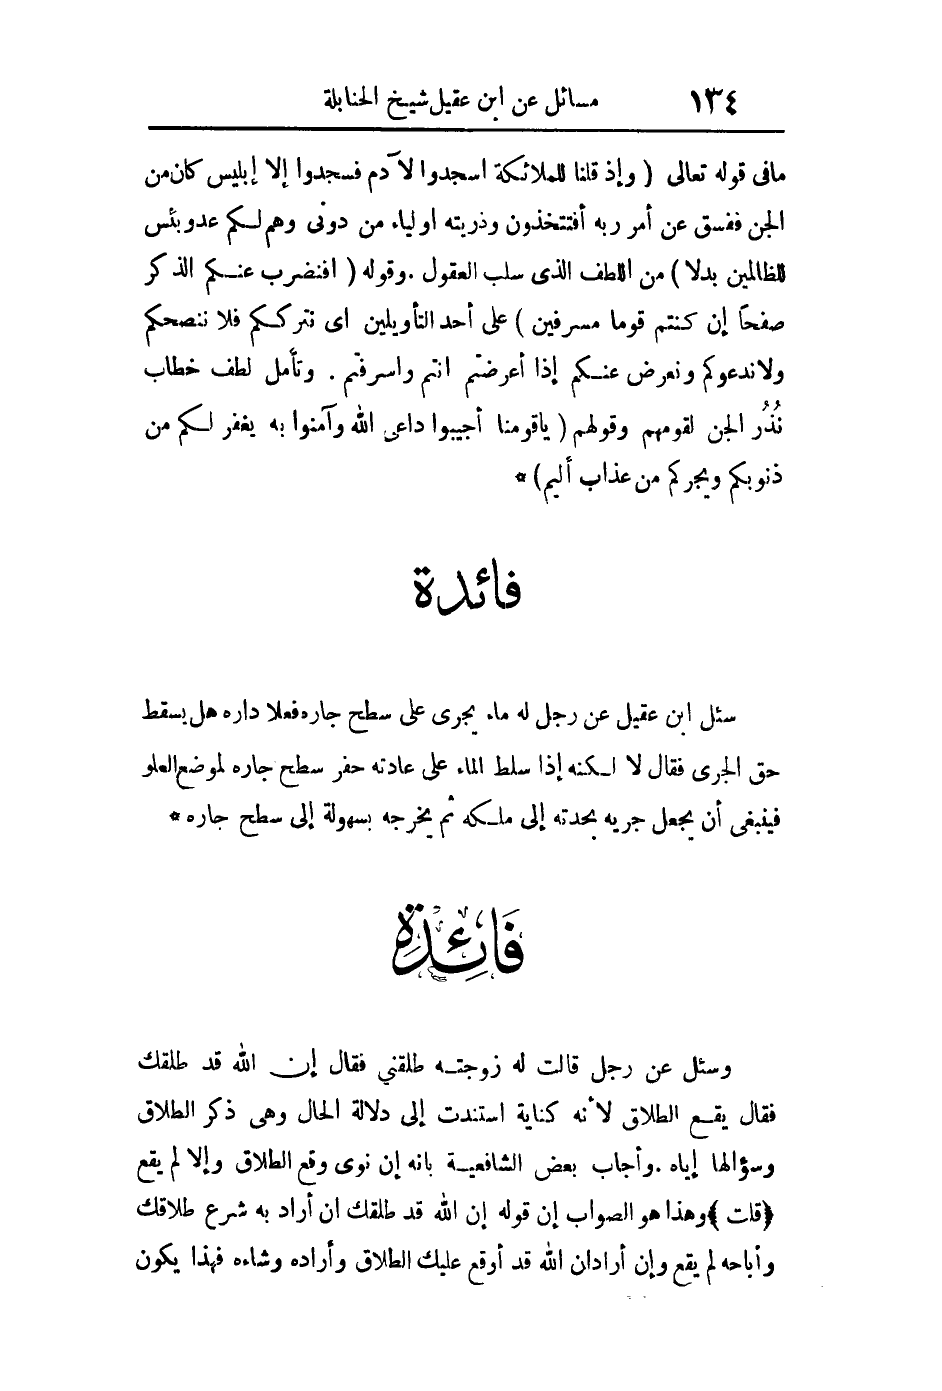 ١٣٤ مسائل عن ابن عقيل شيخ الحنابلة
مافى قوله تعالى ( وإذ قلنا للملائكة اسجدوا لآدم فسجدوا إلا إبليس كان من
الجن ففسق عن أمر ربه أفتتخذون وذريته اولياء من دونى وهم لكم عدو بئس
للظالمين بدلا ) من اللطف الذى سلب العقول . وقوله ( افنضرب عنكم الذكر
صفحاً إن كنتم قوما مسرفين ) على أحد التأويلين اى نترككم فلا ننصحكم
ولا ندعوكم ونعرض عنكم إذا أعرضتم انتم واسرفتم . وتأمل لطف خطاب
نُذُر الجن لقومهم وقولهم ( ياقومنا أجيبوا داعى الله وآمنوا به يغفر لكم من
ذنوبكم ويجركم من عذاب أليم ) *
فائدة
سئل ابن عقيل عن رجل له ماء يجرى على سطح جاره فعلا داره هل يسقط
حق الجرى فقال لا لكنه إذا سلط الماء على عادته حفر سطح جاره لموضع العلو
فينبغى أن يجعل جريه بحدته إلى ملكه ثم يخرجه بسهولة إلى سطح جاره *
فَائِدَة
وسئل عن رجل قالت له زوجته طلقني فقال إن الله قد طلقك
فقال يقع الطلاق لأنه كناية استندت إلى دلالة الحال وهى ذكر الطلاق
وسؤالها إياه . وأجاب بعض الشافعية بانه إن نوى وقع الطلاق وإلا لم يقع
﴿قلت﴾ وهذا هو الصواب إن قوله إن الله قد طلقك ان أراد به شرع طلاقك
وأباحه لم يقع وإن أراد ان الله قد أوقع عليك الطلاق وأراده وشاءه فهذا يكون